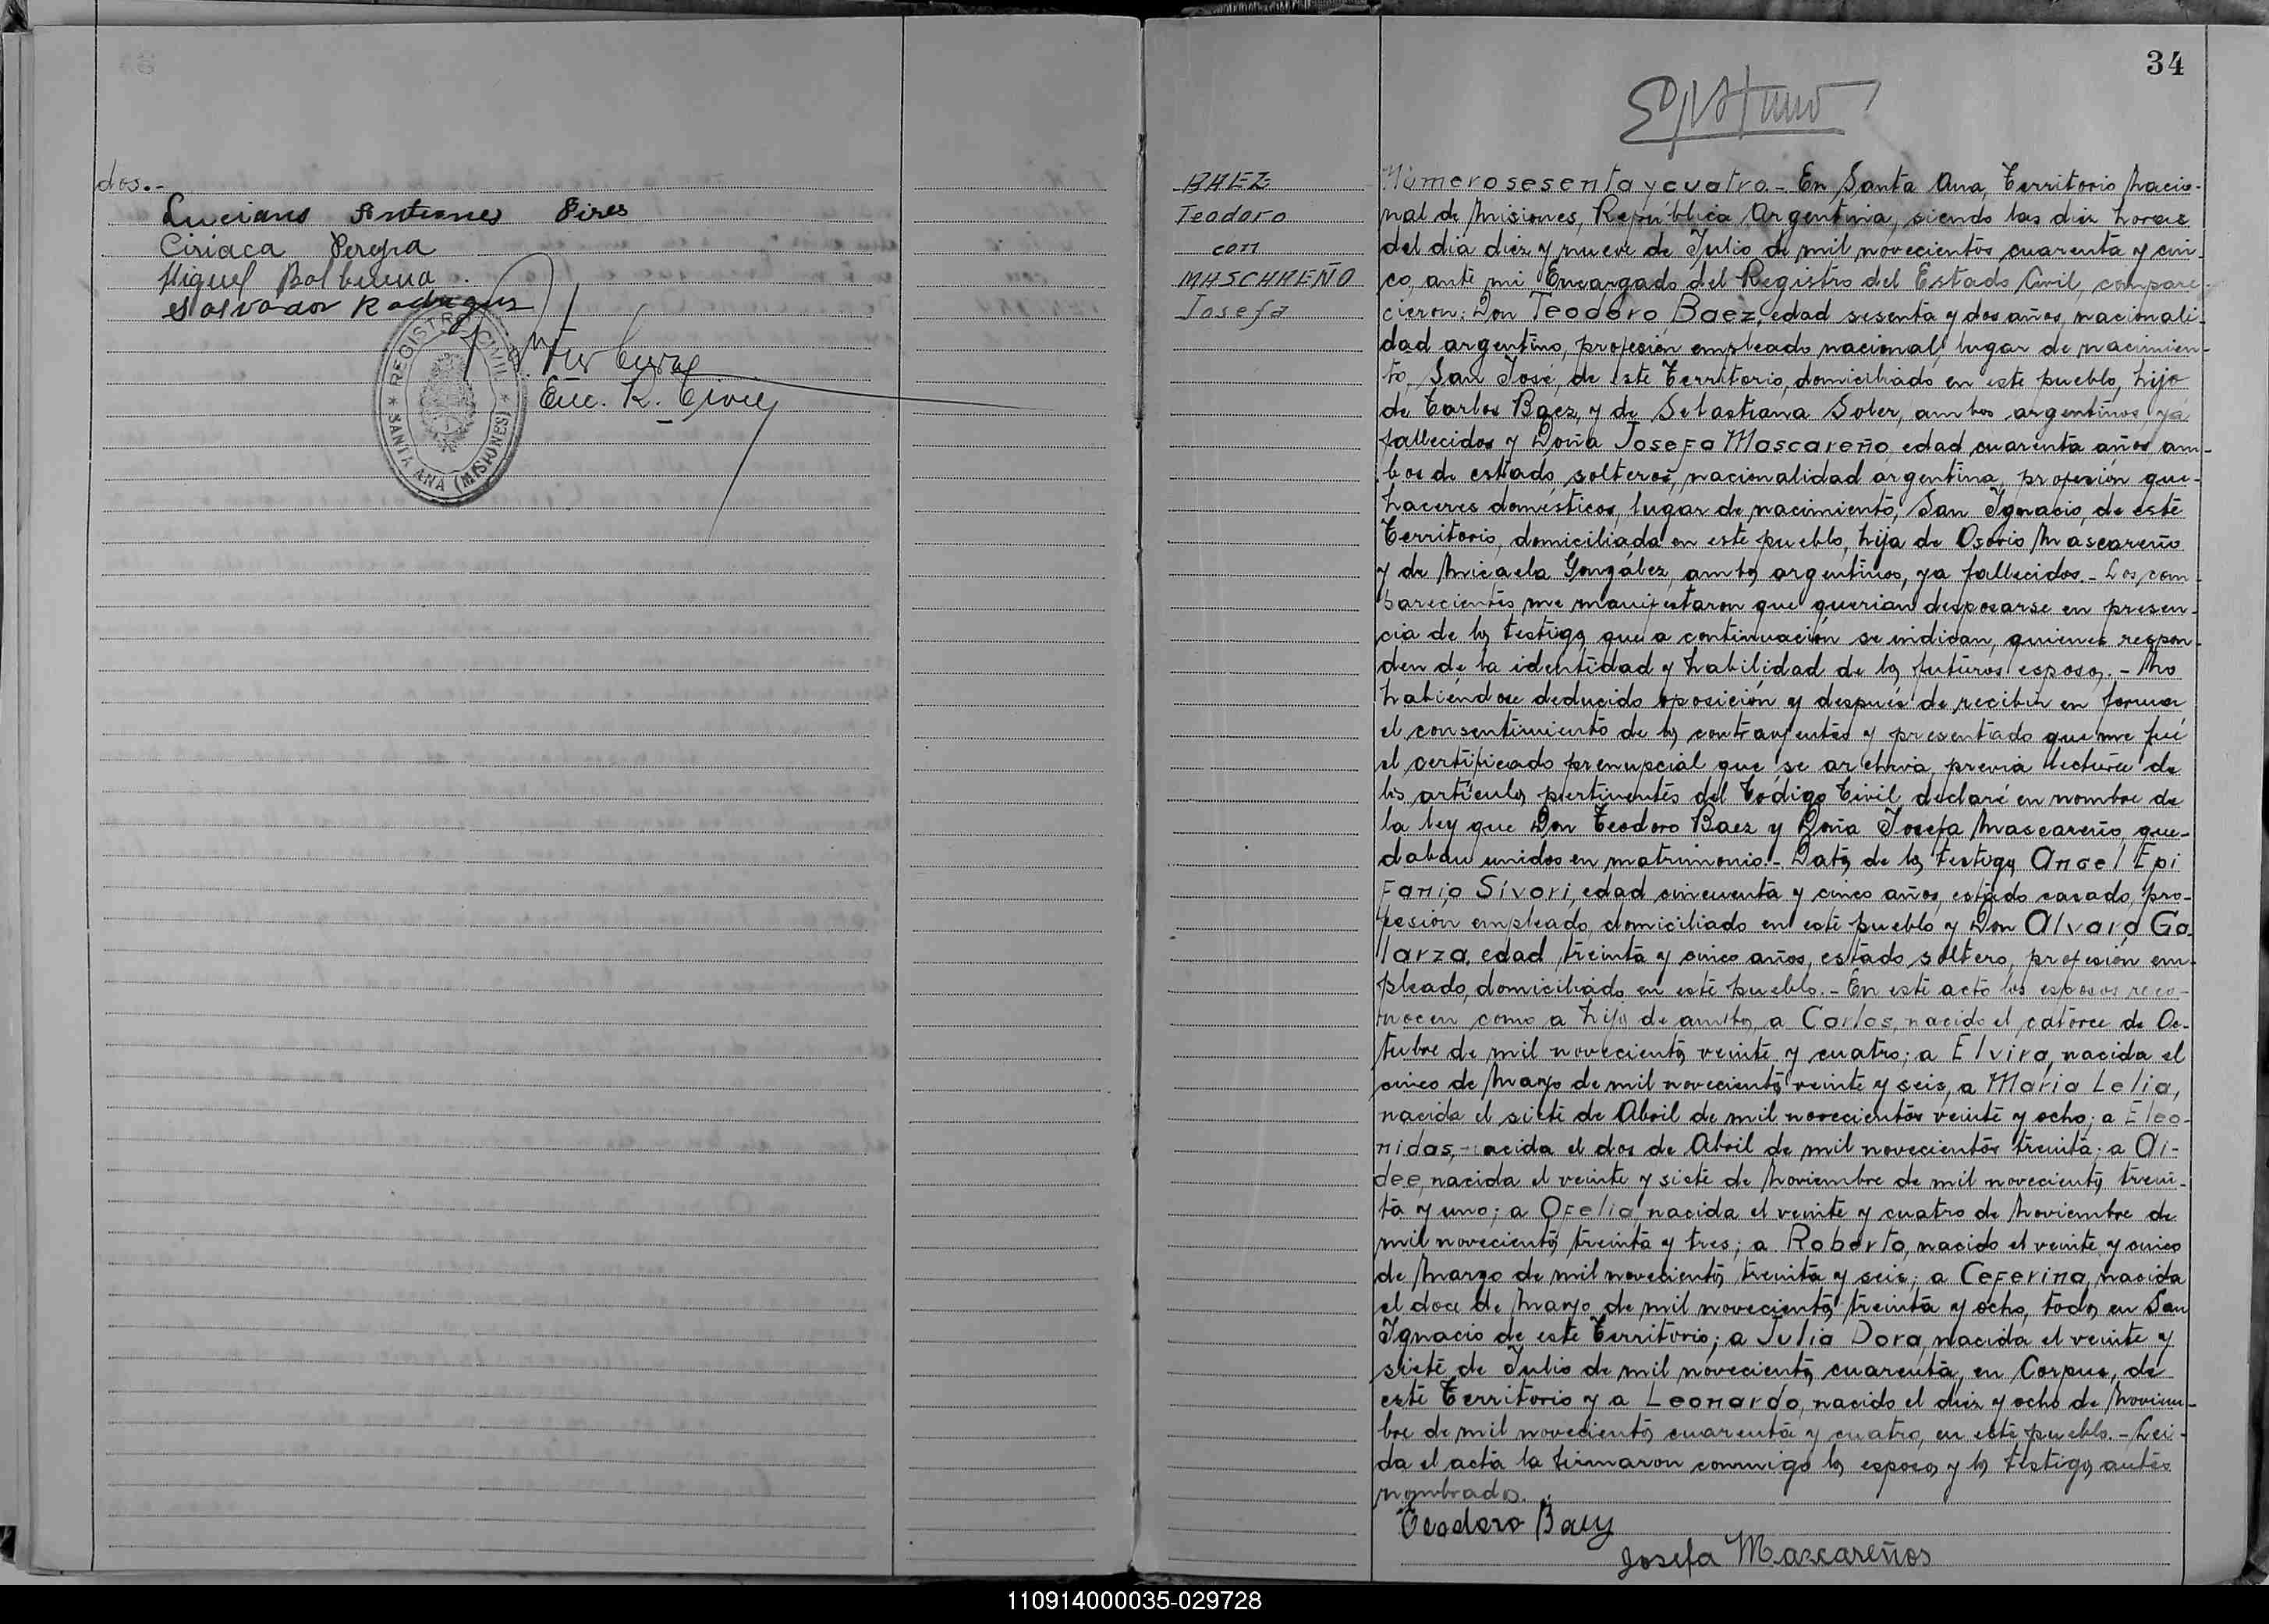 dos.-
Luciano Antunes Pires
Ciriaca Pereyra
Miguel Balbuena
Salvador Rodriguez
REGISTRO CIVIL
SANTA ANA (MISIONES)
Enc. R. Civil
34
BAEZ
Teodoro
con
MASCAREÑO
Josefa
Número sesenta y cuatro.- En Santa Ana, Territorio Nacio-
nal de Misiones, República Argentina, siendo las diez horas
del día diez y nueve de Julio de mil novecientos cuarenta y cin-
co, ante mi Encargado del Registro del Estado Civil, compare-
cieron: Don Teodoro Baez, edad sesenta y dos años, nacionali-
dad argentino, profesión empleado nacional, lugar de nacimien-
to, San José, de este Territorio, domiciliado en este pueblo, hijo
de Carlos Baez, y de Sebastiana Soler, ambos argentinos, ya
fallecidos y Doña Josefa Mascareño, edad cuarenta años am-
bos de estado solteros, nacionalidad argentina, profesión que-
haceres domésticos, lugar de nacimiento, San Ignacio, de este
Territorio, domiciliada en este pueblo, hija de Osorio Mascareño
y de Micaela González, ambos argentinos, ya fallecidos.- Los com-
parecientes me manifestaron que querían desposarse en presen-
cia de los testigos que a continuación se indican, quienes respon-
den de la identidad y habilidad de los futuros esposos.- No
habiéndose deducido oposición y después de recibir en forma
el consentimiento de los contrayentes y presentado que me fué
el certificado prenupcial que se archiva, previa lectura de
los artículos pertinentes del Código Civil, declaré en nombre de
la ley que Don Teodoro Baez y Doña Josefa Mascareño, que-
daban unidos en matrimonio.- Datos de los testigos Angel Epi
fanio Sívori, edad cincuenta y cinco años, estado casado, pro-
fesión empleado, domiciliado en este pueblo y Don Alvaro Ga-
larza, edad treinta y cinco años, estado soltero, profesión em-
pleado, domiciliado en este pueblo.- En este acto los esposos reco-
nocen como a hijos de ambos, a Carlos, nacido el catorce de Oc-
tubre de mil novecientos veinte y cuatro; a Elvira, nacida el
cinco de Marzo de mil novecientos veinte y seis, a Maria Lelia,
nacida el siete de Abril de mil novecientos veinte y ocho; a Eleo-
nidas, nacida el dos de Abril de mil novecientos treinta; a Ai-
dee, nacida el veinte y siete de Noviembre de mil novecientos trein-
ta y uno; a Ofelia, nacida el veinte y cuatro de Noviembre de
mil novecientos treinta y tres; a Roberto, nacido el veinte y cinco
de Marzo de mil novecientos treinta y seis; a Ceferina, nacida
el doce de Marzo de mil novecientos treinta y ocho, todos en San
Ignacio de este Territorio; a Julia Dora, nacida el veinte y
siete de Julio de mil novecientos cuarenta, en Corpus, de
este Territorio y a Leonardo, nacido el diez y ocho de Noviem-
bre de mil novecientos cuarenta y cuatro, en este pueblo.- Leí-
da el acta la firmaron conmigo los esposos y los testigos antes
nombrados.
Teodoro Baez
Josefa Mascareños
110914000035-029728